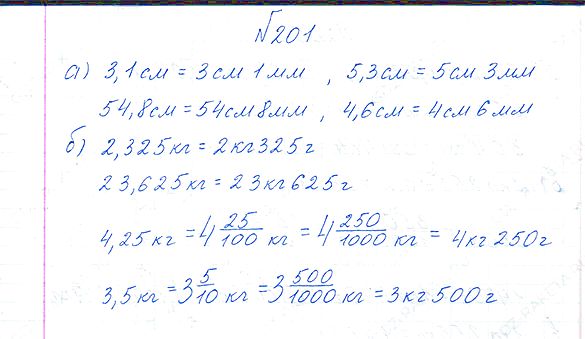 №201
а) 3,1см = 3см 1мм , 5,3см = 5см 3мм
54,8см = 54см8мм , 4,6см = 4см 6мм
б) 2,325кг = 2кг325г
23,625кг = 23кг625г
4,25кг = 4 25/100 кг = 4 250/1000 кг = 4кг 250г
3,5кг = 3 5/10 кг = 3 500/1000 кг = 3кг 500г